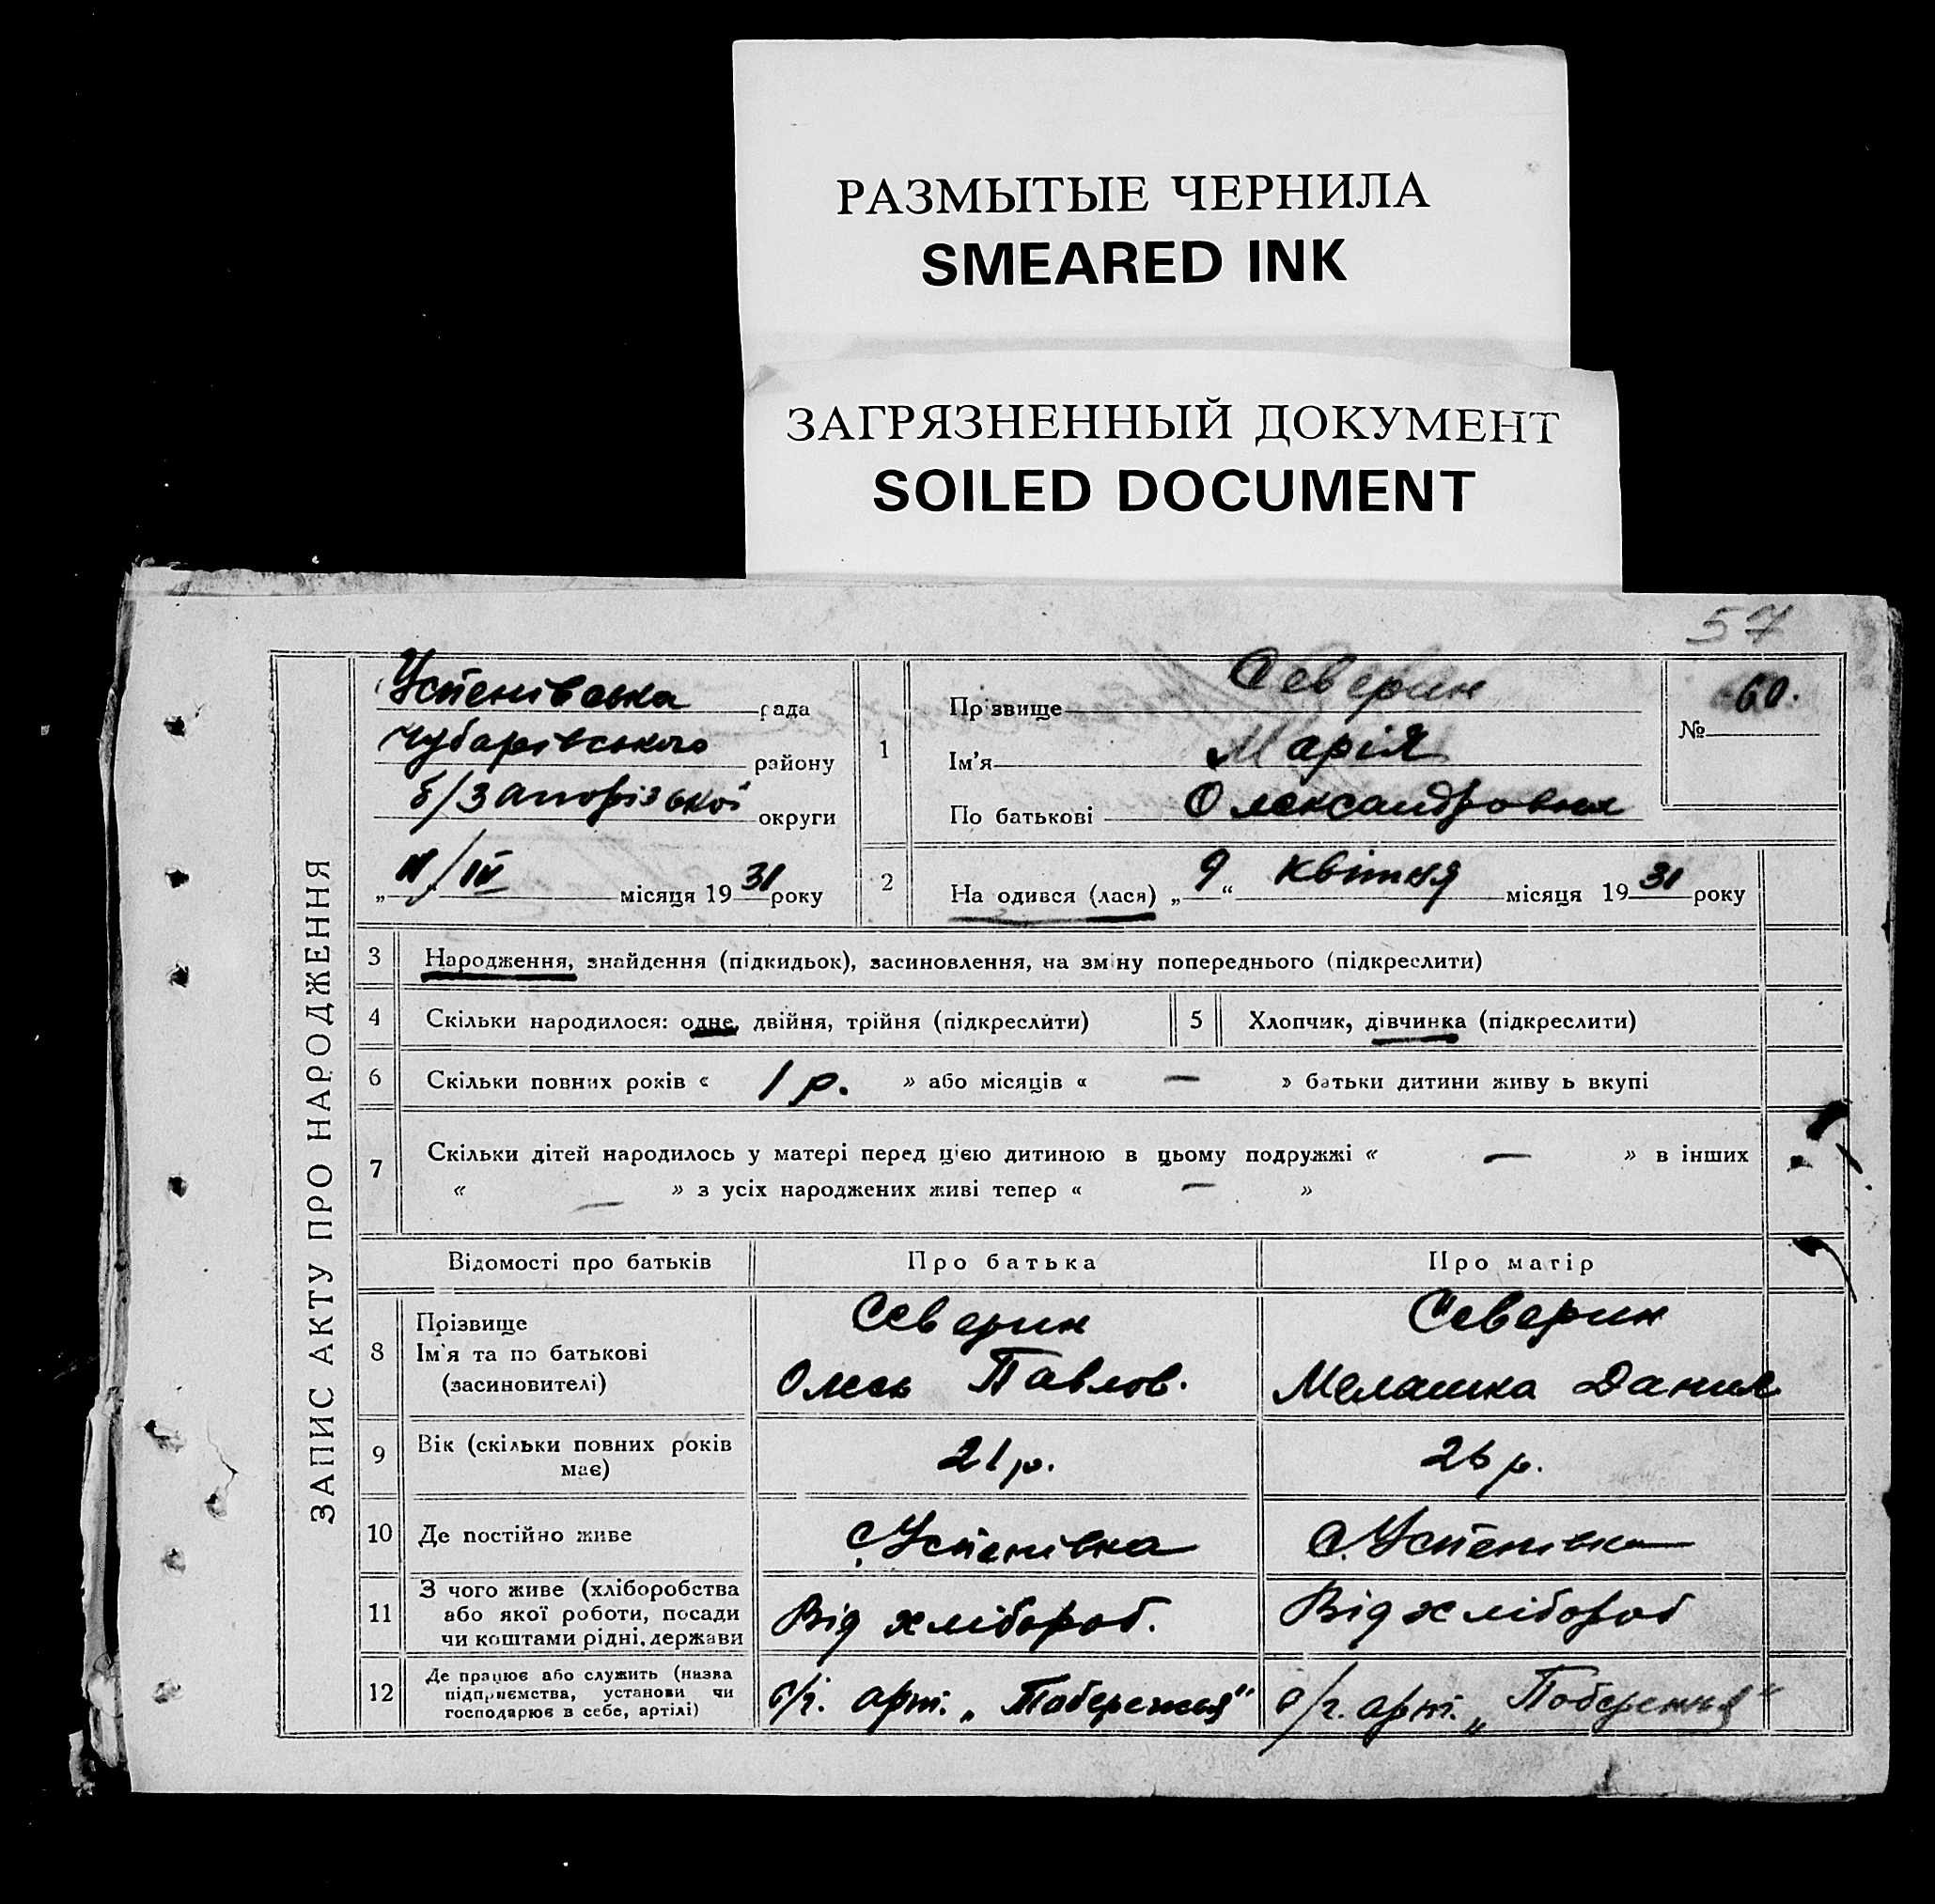 РАЗМЫТЫЕ ЧЕРНИЛА
SMEARED INK
ЗАГРЯЗНЕННЫЙ ДОКУМЕНТ
SOILED DOCUMENT
57
ЗАПИС АКТУ ПРО НАРОДЖЕННЯ
Успенівська рада
Чубарівського району
б/Запорізької округи
/IV місяця 1931 року
1
Прізвище Северин
Ім'я Марія
По батькові Олександровна
№ 60.
2
На одився (лася) „9“ квітня місяця 1931 року
3 Народження, знайдення (підкидьок), засиновлення, на зміну попереднього (підкреслити)
4 Скільки народилося: одне, двійня, трійня (підкреслити) 5 Хлопчик, дівчинка (підкреслити)
6 Скільки повних років « 1 р. » або місяців « — » батьки дитини живу ь вкупі
7 Скільки дітей народилось у матері перед ц'єю дитиною в цьому подружжі « — » в інших
« — » з усіх народжених живі тепер « — »
Відомості про батьків Про батька Про матір
8 Прізвище
Ім'я та по батькові
(засиновителі)
Северин
Олесь Павлов.
Северин
Мелашка Данил.
9 Вік (скільки повних років
має)
21 р.
26 р.
10 Де постійно живе с. Успенівка с. Успенівка
11 З чого живе (хліборобства
або якої роботи, посади
чи коштами рідні, держави
Від хлібороб.
Від хлібороб
12 Де працює або служить (назва
підприємства, установи чи
господарює в себе, артілі)
с/г. арт. „Побережья“
с/г. арт. „Побережья“